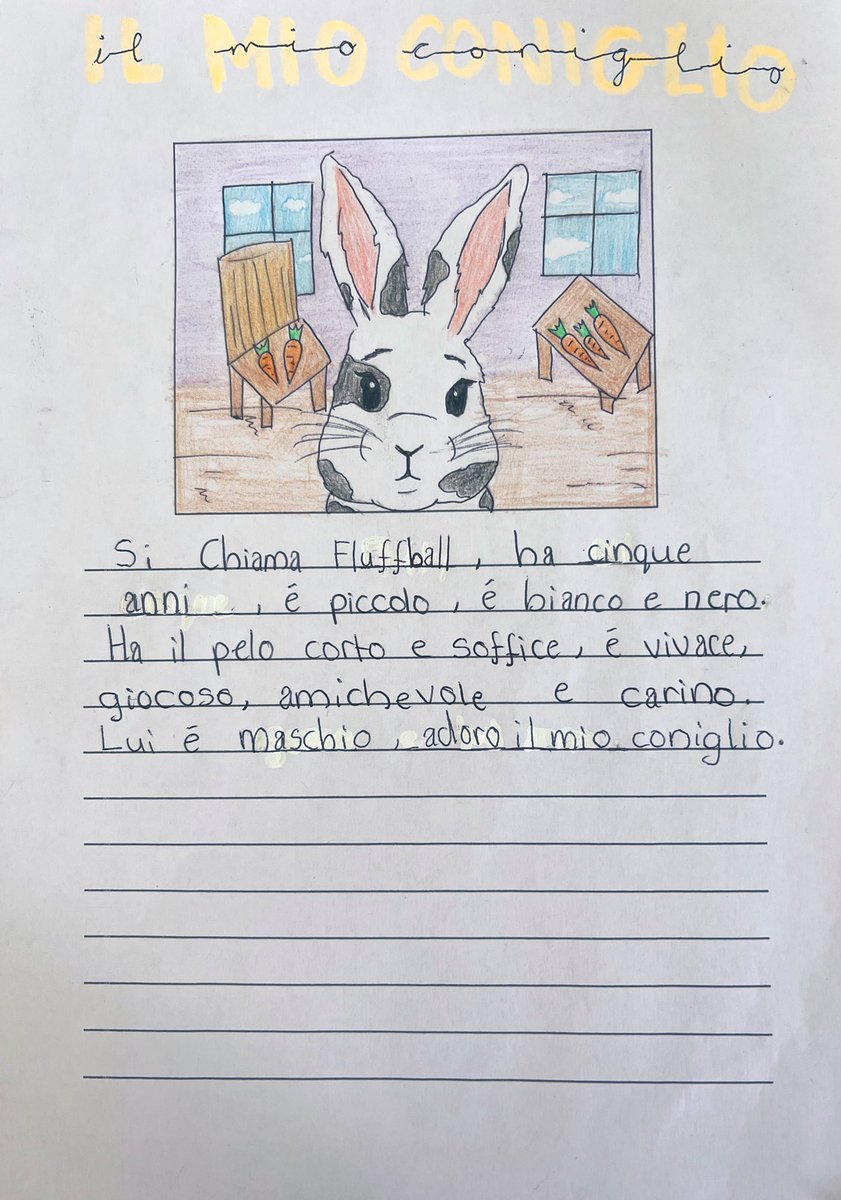 IL MIO CONIGLIO
il mio coniglio
Si Chiama Fluffball, ha cinque
anni, é piccolo, é bianco e nero.
Ha il pelo corto e soffice, é vivace,
giocoso, amichevole e carino.
Lui é maschio, adoro il mio coniglio.